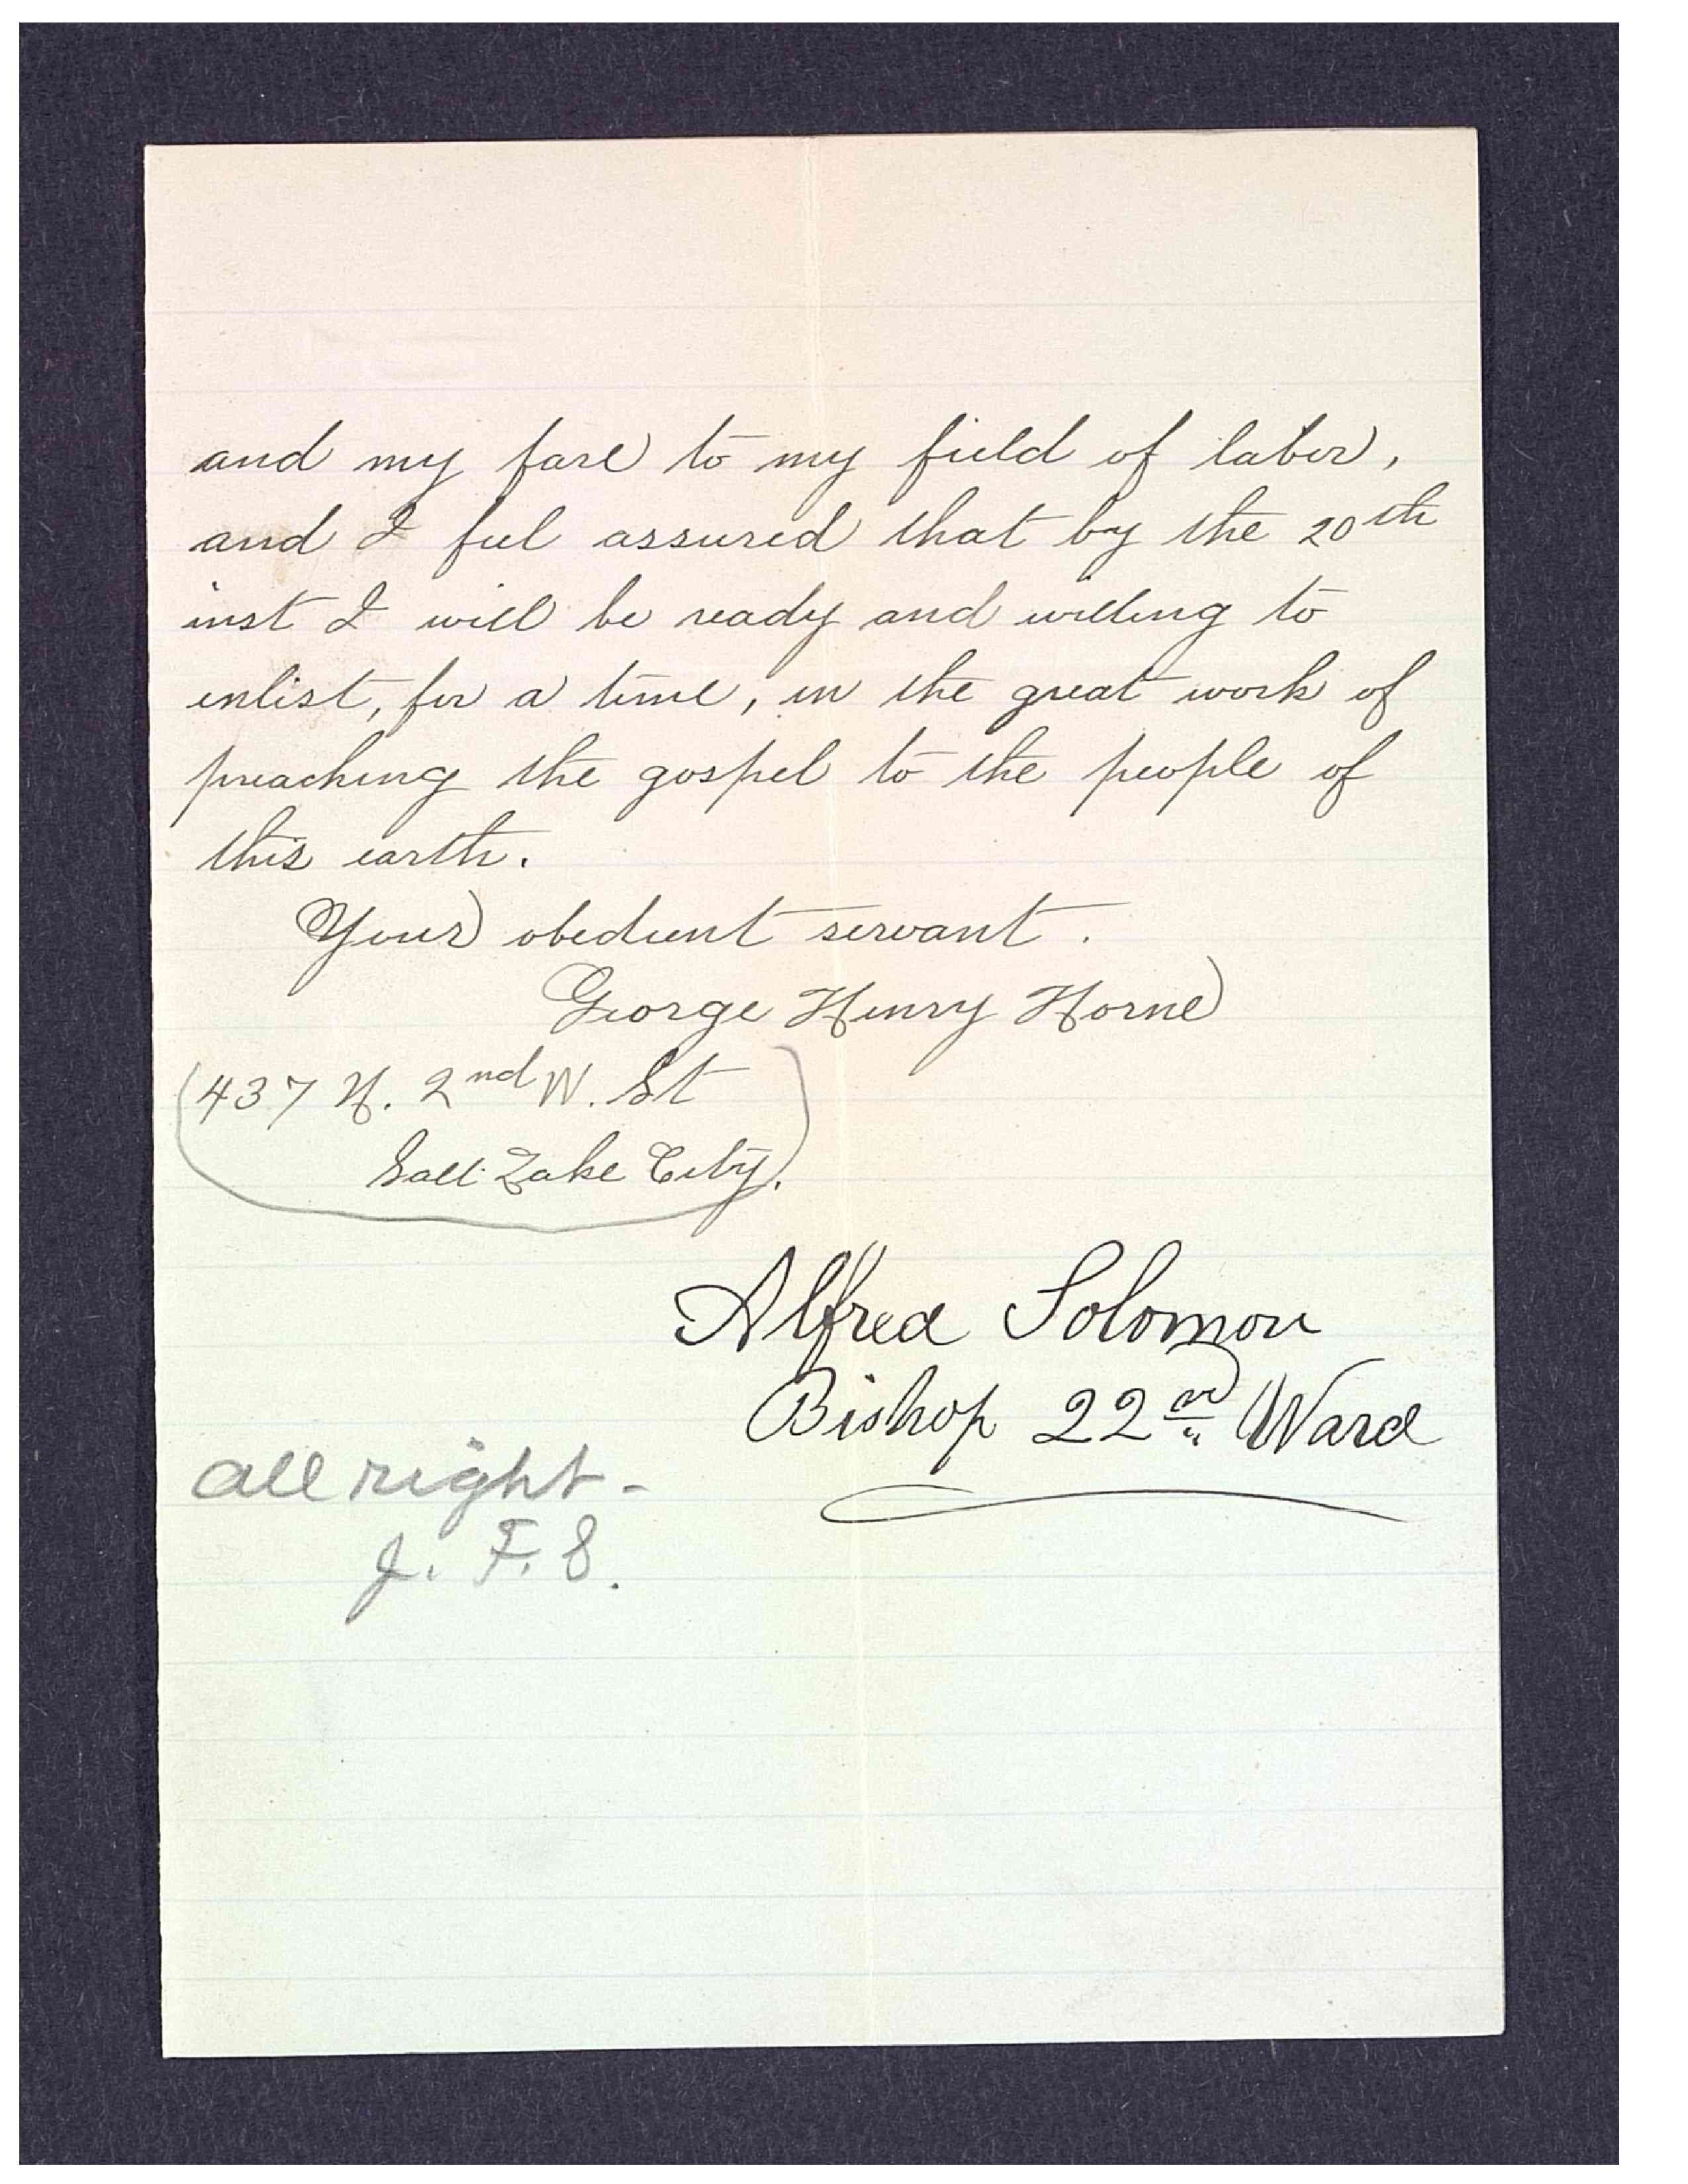 and my fare to my field of labor,
and I feel assured that by the 20th
inst I will be ready and willing to
enlist, for a time, in the great work of
preaching the gospel to the people of
this earth.
Your obedient servant.
George Henry Horne
(437 N. 2nd W. St
Salt Lake City.)
Alfred Solomon
Bishop 22nd Ward
all right -
J. F. S.